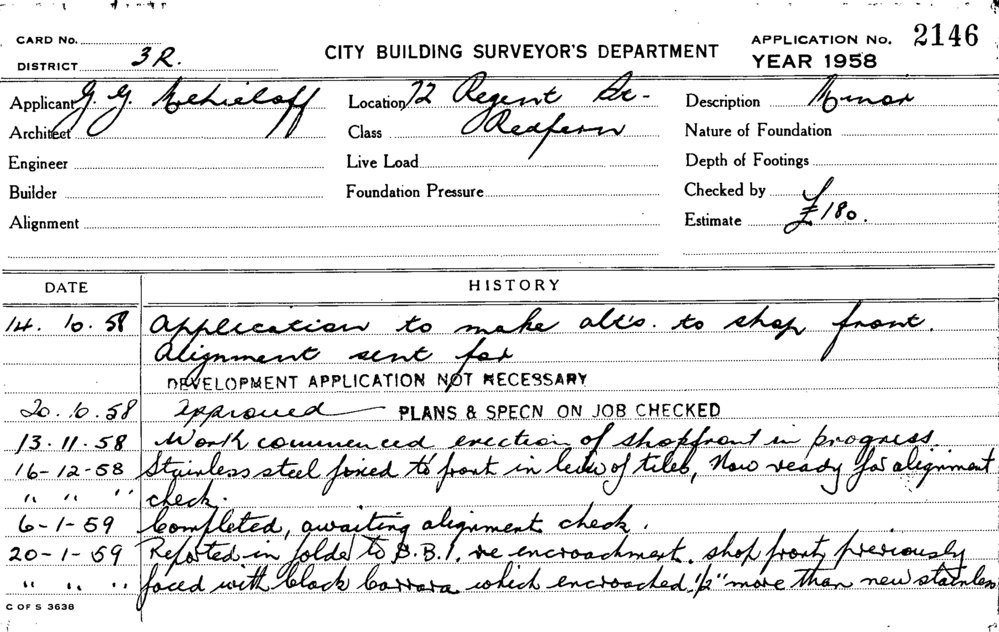 CARD No.
DISTRICT 3R.
CITY BUILDING SURVEYOR'S DEPARTMENT
APPLICATION No. 2146
YEAR 1958
Applicant G. G.
Location 72 Regent St-
Description Minor
Architect
Class Redfern
Nature of Foundation
Engineer
Live Load
Depth of Footings
Builder
Foundation Pressure
Checked by
Alignment
Estimate £180.
DATE HISTORY
14. 10. 58 Application to make alts. to shop front.
Alignment sent for
DEVELOPMENT APPLICATION NOT NECESSARY
20. 10. 58 Approved — PLANS & SPECN ON JOB CHECKED
13. 11. 58 Work commenced erection of shopfront in progress.
16-12-58 Stainless steel fixed to front in lieu of tiles, Now ready for alignment
" " " check.
6-1-59 Completed, awaiting alignment check.
20-1-59 Reported in folder to B.B.I. re encroachment. shop front previously
" " " faced with black Carrara which encroached 1/2" more than new stainless
C OF S 3638